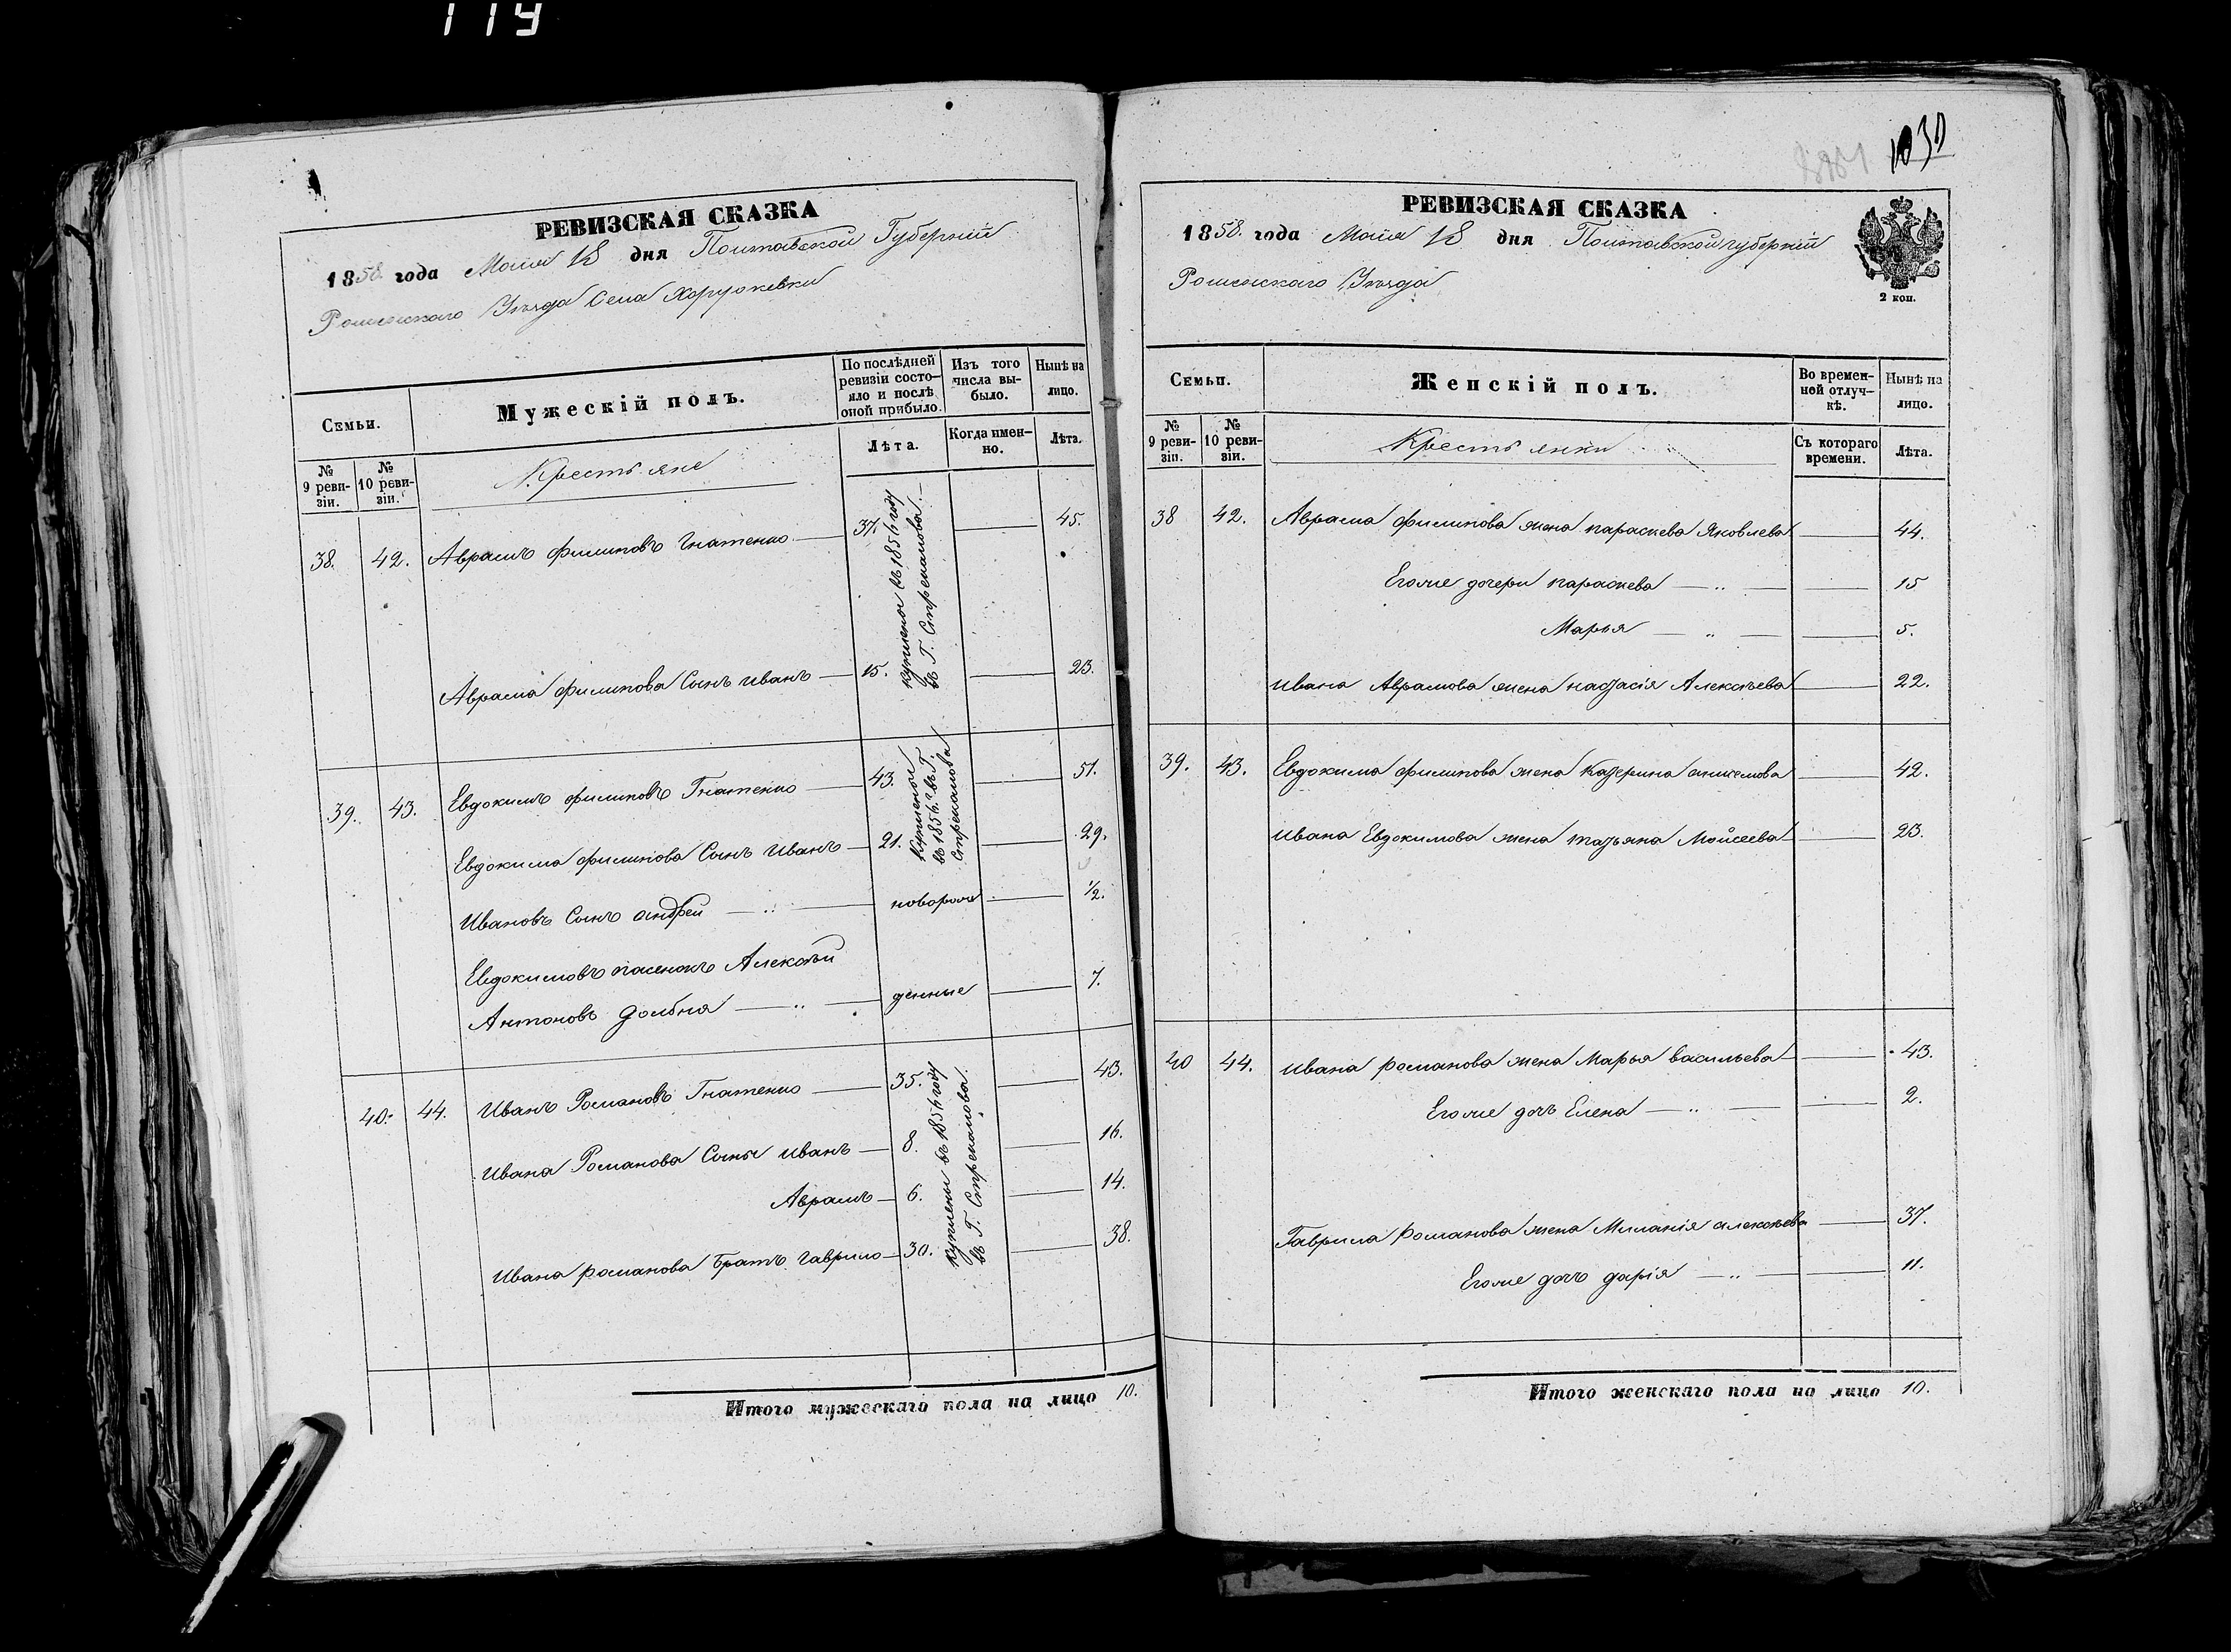 119
РЕВИЗСКАЯ СКАЗКА
1858 года Маія 18 дня Полтавской Губерніи
Роменскаго Уѣзда Села Хоружевки
Семьи.
Мужескій полъ.
По послѣдней ревизіи состояло и послѣ оной прибыло.
Изъ того числа выбыло.
Нынѣ на лицо.
№ 9 ревизіи.
№ 10 ревизіи.
Крестьяне
Лѣта.
Когда именно.
Лѣта.
38. 42. Аврамъ Филиповъ Гнатенко — 37. — 45.
куплены въ 1854 году
въ Г. Стремоухова
Аврама Филипова Сынъ Иванъ — 15. — 23.
39. 43. Евдокимъ Филиповъ Гнатенко — 43. — 51.
Куплены
въ 1854 г. въ Г.
Евдокима Филипова Сынъ Иванъ — 21. — 29.
Ивановъ Сынъ Андрей — " — новорож — 1/2.
Евдокимовъ пасенокъ Алексѣй
Антоновъ Долбня — " — денные — 7.
40. 44. Иванъ Романовъ Гнатенко — 35. — 43.
куплены въ 1854 году
въ Г.
Ивана Романова Сыны Иванъ — 8. — 16.
Аврамъ — 6. — 14.
Ивана Романова Братъ Гаврило — 30. — 38.
Итого мужескаго пола на лицо 10.
1030
РЕВИЗСКАЯ СКАЗКА
1858 года Маія 18 дня Полтавской губерніи
Роменскаго Уѣзда
2 коп.
Семьи.
Женскій полъ.
Во временной отлучкѣ.
Нынѣ на лицо.
№ 9 ревизіи.
№ 10 ревизіи.
Крестьянки
Съ котораго времени.
Лѣта.
38 42. Аврама Филипова жена Параскева Яковлева — 44.
Егоже дочери Параскева — " — — 15
Марья — " — — 5.
Ивана Аврамова жена Настасія Алексѣева — 22.
39. 43. Евдокима Филипова жена Катерина — 42.
Ивана Евдокимова жена Татьяна Мойсеева — 23.
40 44. Ивана Романова жена Марья Васильева — 43.
Егоже дочь Елена — " — — 2.
Гаврила Романова жена Миланія Алексѣева — 37.
Егоже дочь Дарія — " — — 11.
Итого женскаго пола на лицо 10.